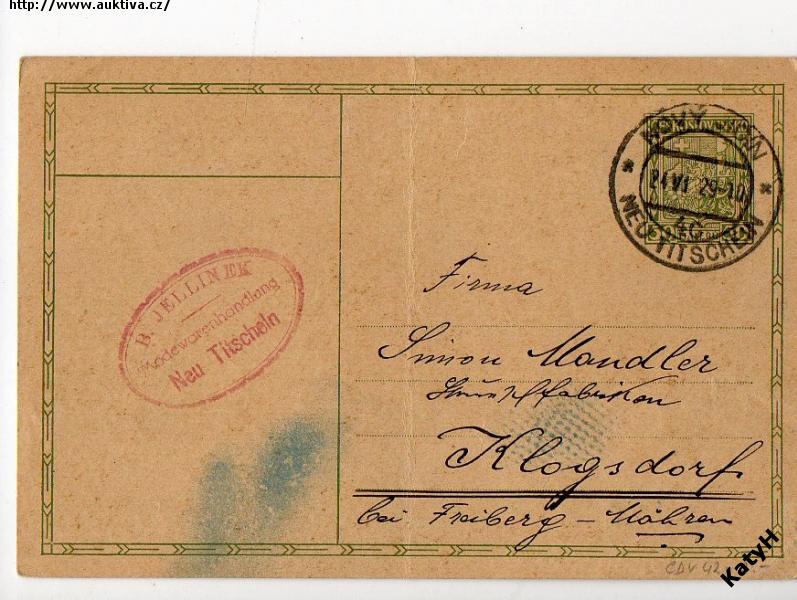 http://www.auktiva.cz/
NOVÝ JIČÍN
24 VI 29-10
4c
NEU TITSCHEIN
B. JELLINEK
Modewarenhandlung
Neu Titschein
Firma
Simon Mandler
Klogsdorf
bei Freiberg - Mähren
CDV 42
KatyH